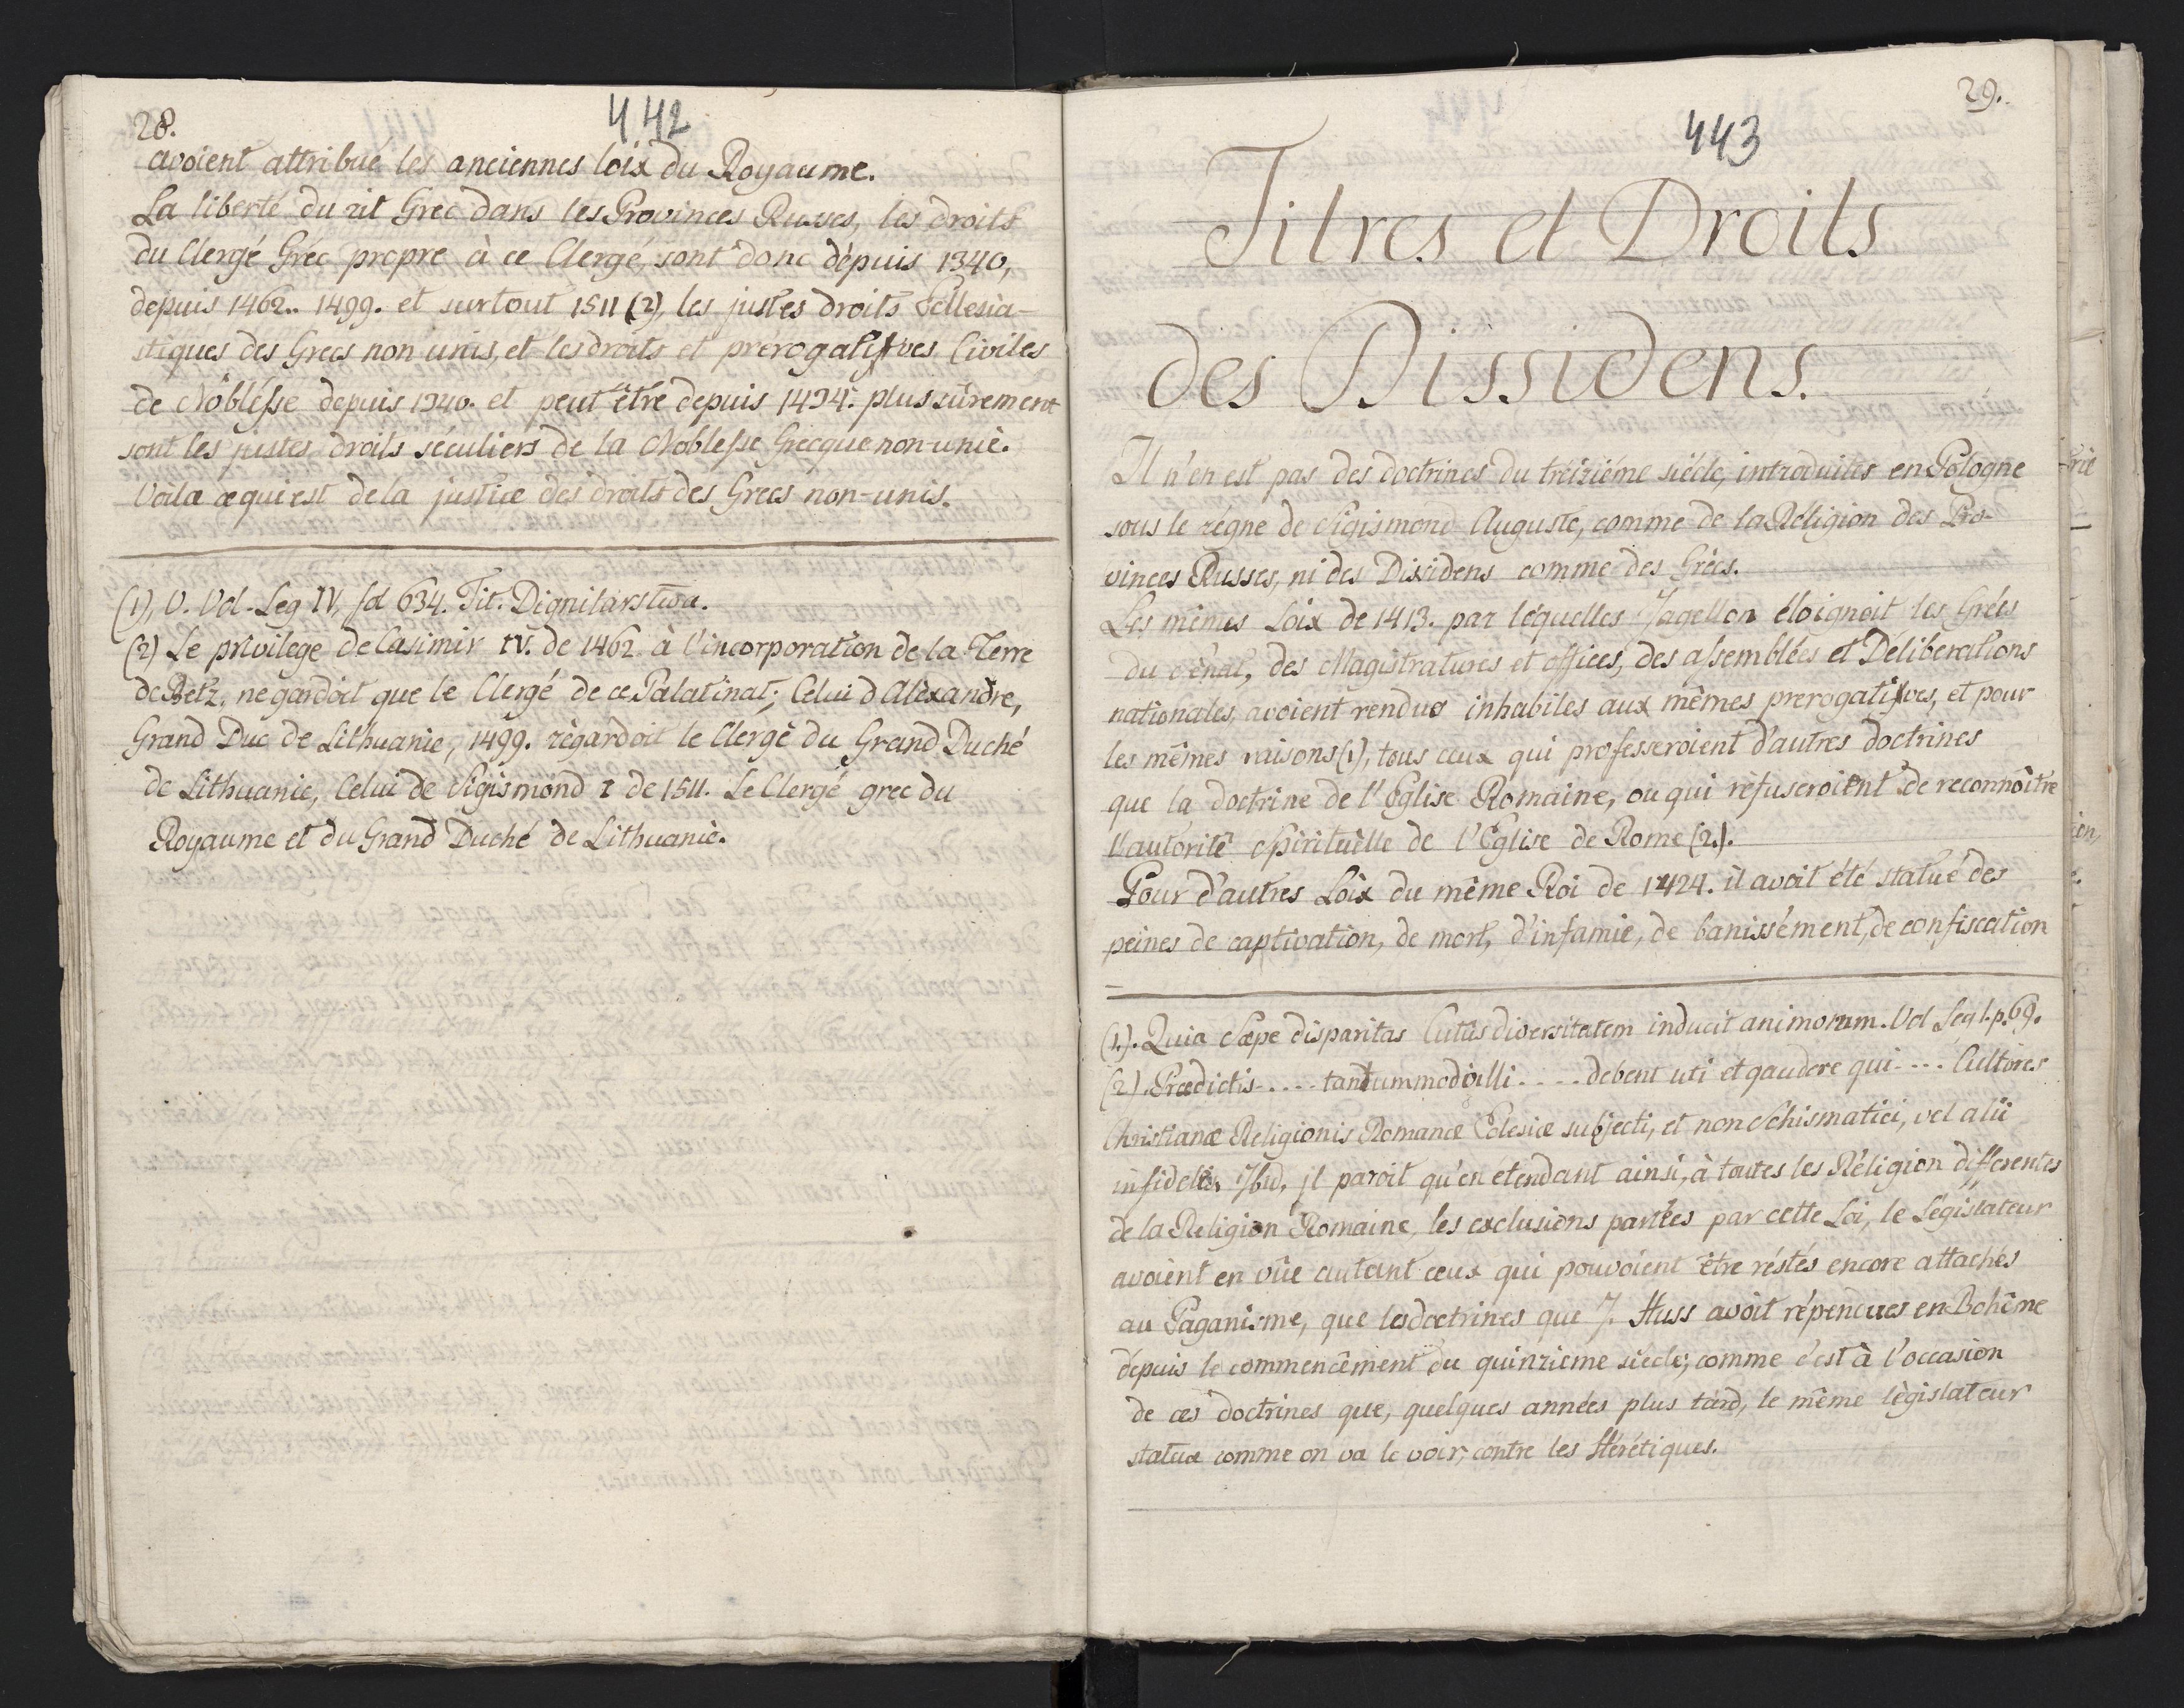 28.
442
avoient attribué les anciennes loix du Royaume.
La liberté du rit Grec dans les Provinces Russes, les droits
du Clergé Gréc propre à ce Clergé, sont donc dépuis 1340,
depuis 1462.. 1499. et surtout 1511 (2), les justes droits Ecllesia-
stiques des Grecs non unis, et les droits et prerogatives Civiles
de Noblésse depuis 1340. et peut être depuis 1434. plus sûrement
sont les justes droits séculiers de la Noblesse Grecque non-unié.
Voila ce qui est de la justice des droits des Grecs non-unis.
(1), V. Vol. Leg IV, fol 634. Tit. Dignitarstwa.
(2) Le privilege de Casimir IV. de 1462 à l'incorporation de la Terre
de Betz, ne gardoit que le Clergé de ce Palatinat; Celui d'Aléxandre,
Grand Duc de Lithuanie, 1499. régardoit le Clergé du Grand Duché
de Lithuanie, Celui de Sigismond I de 1511. Le Clergé grec du
Royaume et du Grand Duché de Lithuanie.
29.
443
Titres et Droits
des Dissidens.
Il n'en est pas des doctrines du tréiziéme siécle, introduites en Pologne
sous le régne de Sigismond Auguste, comme de la Réligion des Pro-
vinces Russes, ni des Dissidens comme des Grécs.
Les mêmes Loix de 1413. par léquelles Jagellon éloignoit les Grécs
du Sénat, des Magistratures et offices, des assemblées et Déliberations
nationales, avoient rendus inhabiles aux mêmes prerogatives, et pour
les mêmes raisons (1), tous ceux qui professeroient d'autres doctrines
que la doctrine de l'Eglise Romaine, ou qui réfuseroient de reconnoître
l'autorité spirituelle de l'Eglise de Rome (2.).
Pour d'autres Loix du même Roi de 1424. il avoit été statué des
peines de captivation, de mort, d'infamie, de banissément, de confiscation
(1.). Quia Sæpe disparitas Cultus diversitatem inducit animorum. Vol Leg l. p. 69.
(2). Prædictis..... tantummodo illi..... debent uti et gaudere qui.... Cultores
Christianæ Religionis Romanæ Eclesiæ subjecti, et non Schismatici, vel alii
infideles Ibid, il paroit qu'en étendant ainsi, à toutes les Réligion différentes
de la Religion Romaine, les exclusions portées par cette Loi, le Législateur
avoient en vûe autant ceux qui pouvoient être réstés encore attachés
au Paganisme, que les doctrines que J. Huss avoit répendues en Bohême
dépuis le commencêment du quinzieme siécle; comme c'est à l'occasion
de ces doctrines que, quelques années plus tard, le même législateur
statua comme on va le voir, contre les Hérétiques.